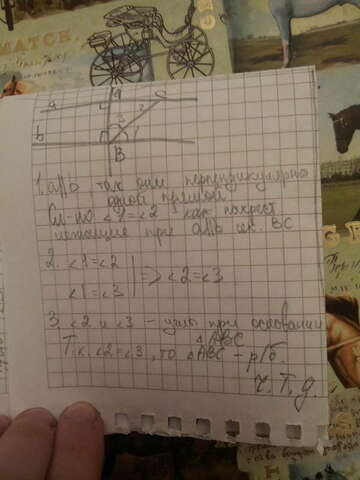 MATCH.
a
b
a
C
2
3
1
B
1. a∥b так они перпендикулярны
одной прямой
След-но, <1=<2 как накрест
лежащие при a∥b сек. BC
2. <1=<2
<1=<3 => <2=<3
3. <2 и <3 - углы при основании
△ABC
Т.к. <2=<3, то △ABC - р/б.
Ч.Т.Д.